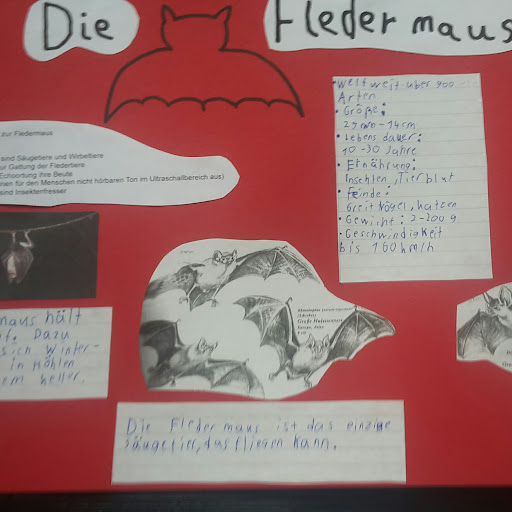 Die Fledermaus
• weltweit über 900
Arten
• Größe:
29mm-14cm
• Lebensdauer:
10-30 Jahre
• Ernährung:
Insekten, Tierblut
• Feinde:
Greifvögel, katzen
• Gewicht: 2-200g
• Geschwindigkeit
bis 160 km/h
zur Fledermaus
sind Säugetiere und Wirbeltiere
ur Gattung der Fledertiere
Echoortung ihre Beute
nen für den Menschen nicht hörbaren Ton im Ultraschallbereich aus)
sind Insektenfresser
Große Hufeisennase
maus hält
Dazu
sich Winter-
in Höhlen
em keller.
Die Fledermaus ist das einzige
säugetier, das fliegen kann.